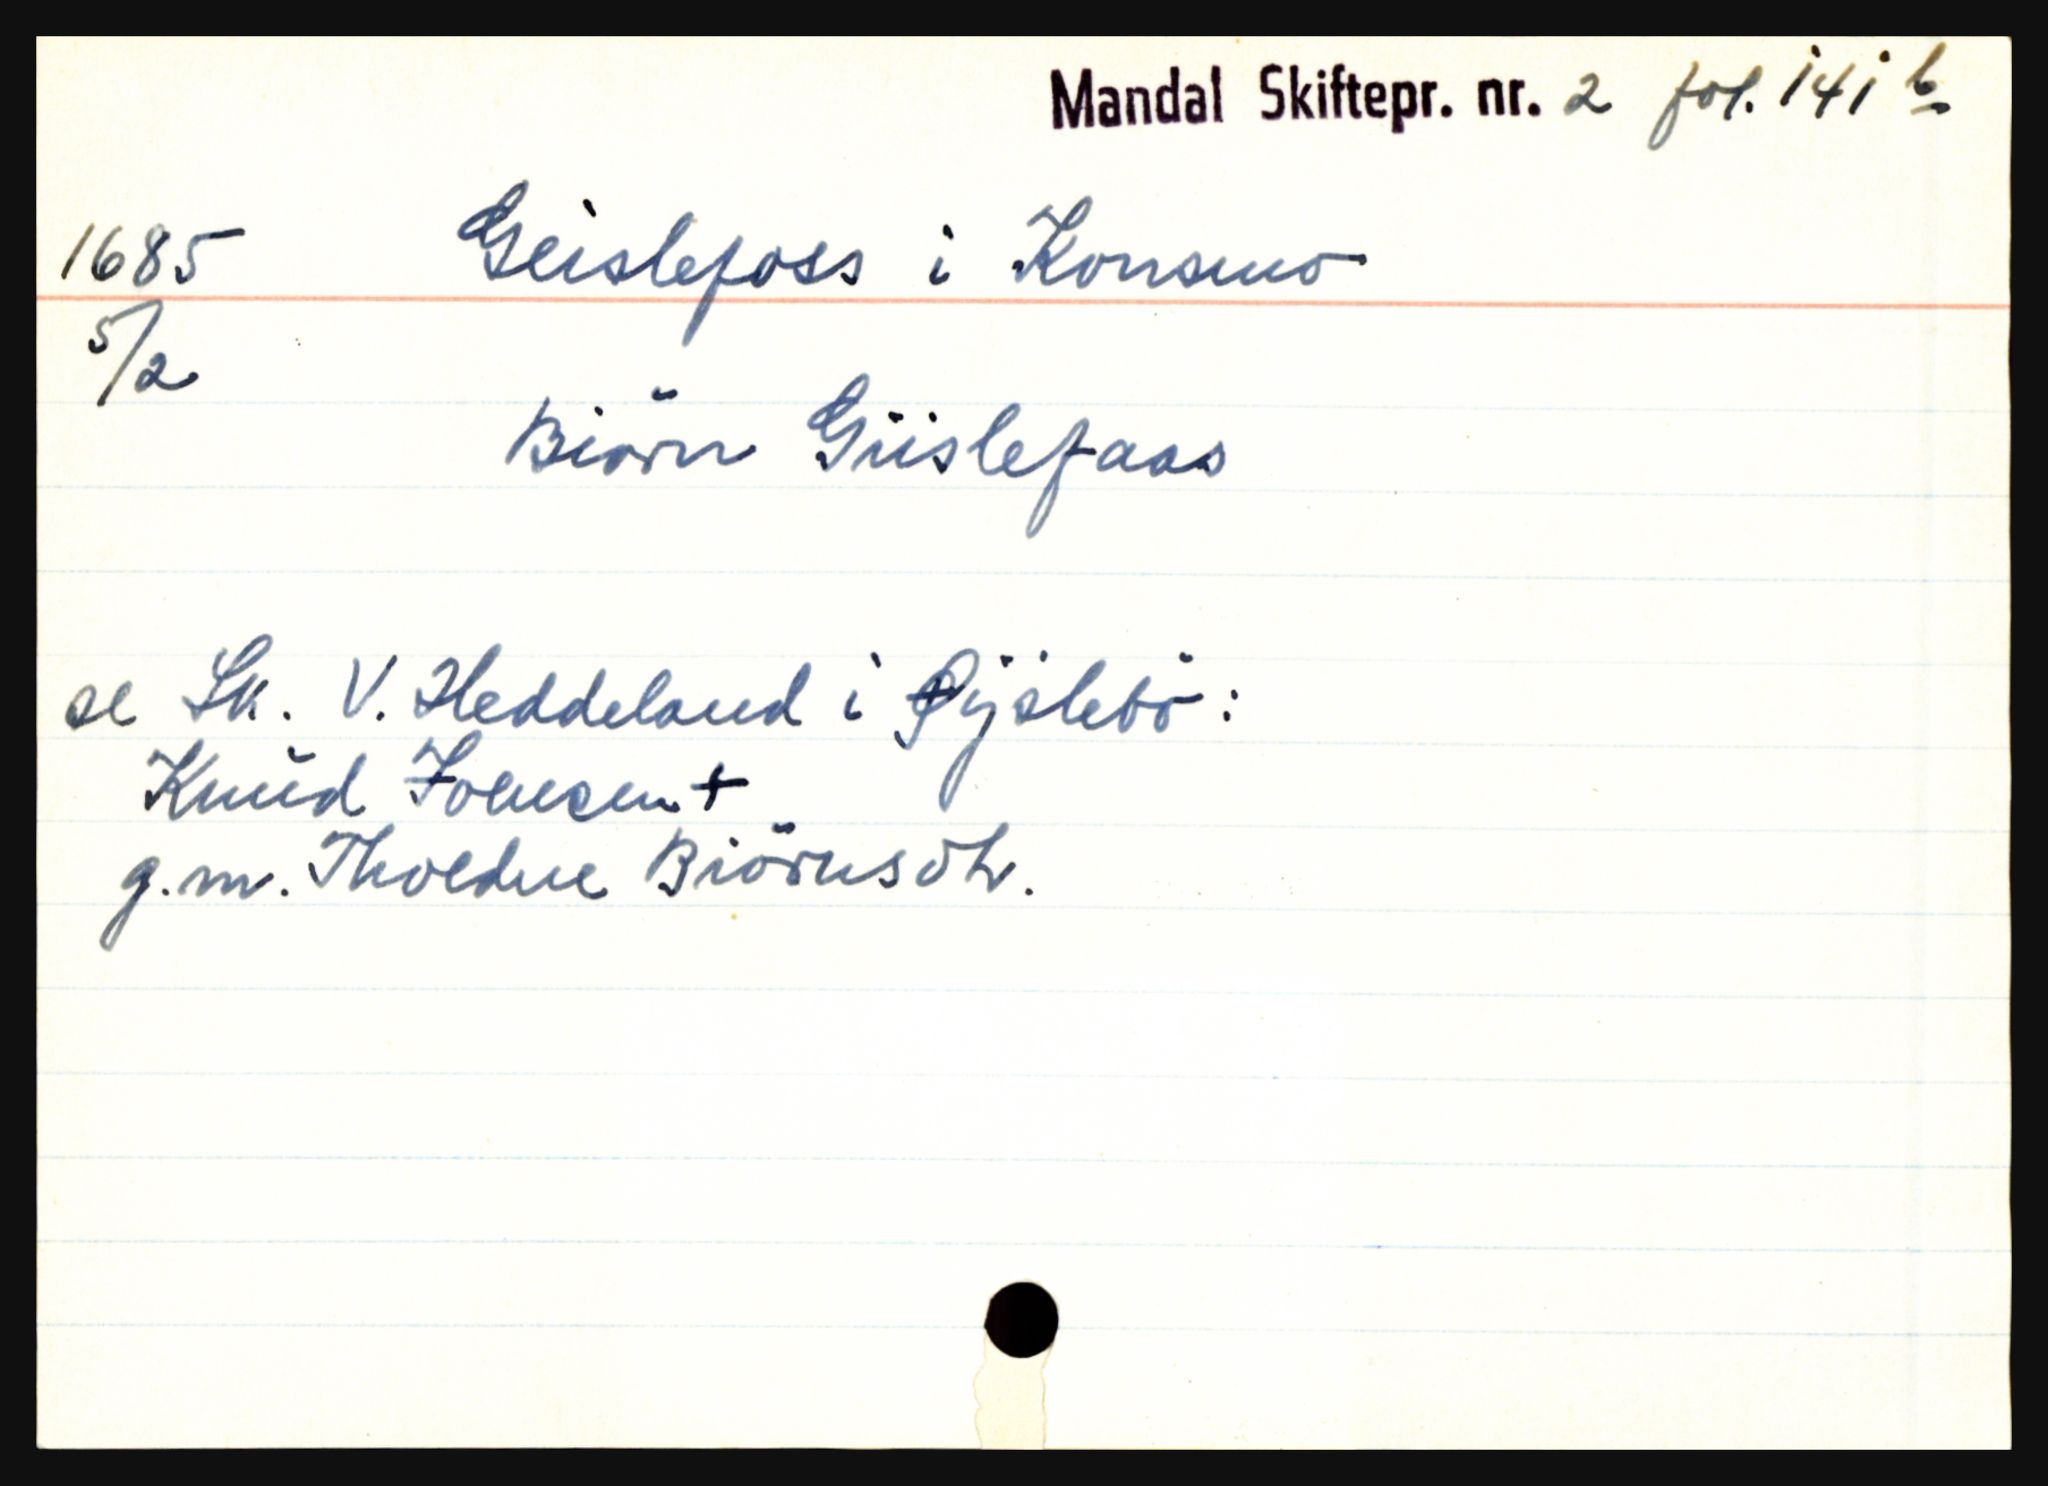 Mandal Skiftepr. nr. 2 fol. 141 b
1685 Geislefoss i Konsmo
5/2
Biörn Giislefaas
se Sk. V. Heddeland i Øyslebö:
Knud Joensen +
g.m. Tholdne Biörnsdtr.